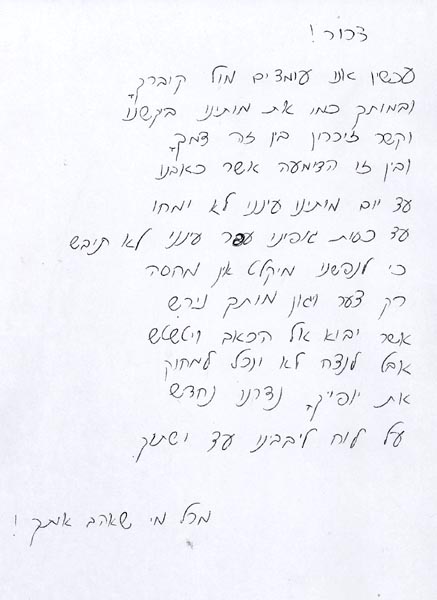 זכור!
עכשיו אנו עומדים מול קוברך
ובמותך כמו את מותינו ביקשנו
וקשר זיכרון בין זה דמך
ובין זו הדימעה אשר כאבנו
עד יום מיתינו עינינו לא ימחו
עד כסית גופינו עפר עינינו לא תיבש
כי לנפשנו מיקלט אין מחסה
רק צער ויגון מותך נירש
אשר יבוא אל הכאב ויטשטש
אבל לנצח לא יוכל למחוק
את יופיך, נדרנו נחדש
על לוח ליבבינו עד ישתוק.
מכל מי שאהב אותך!